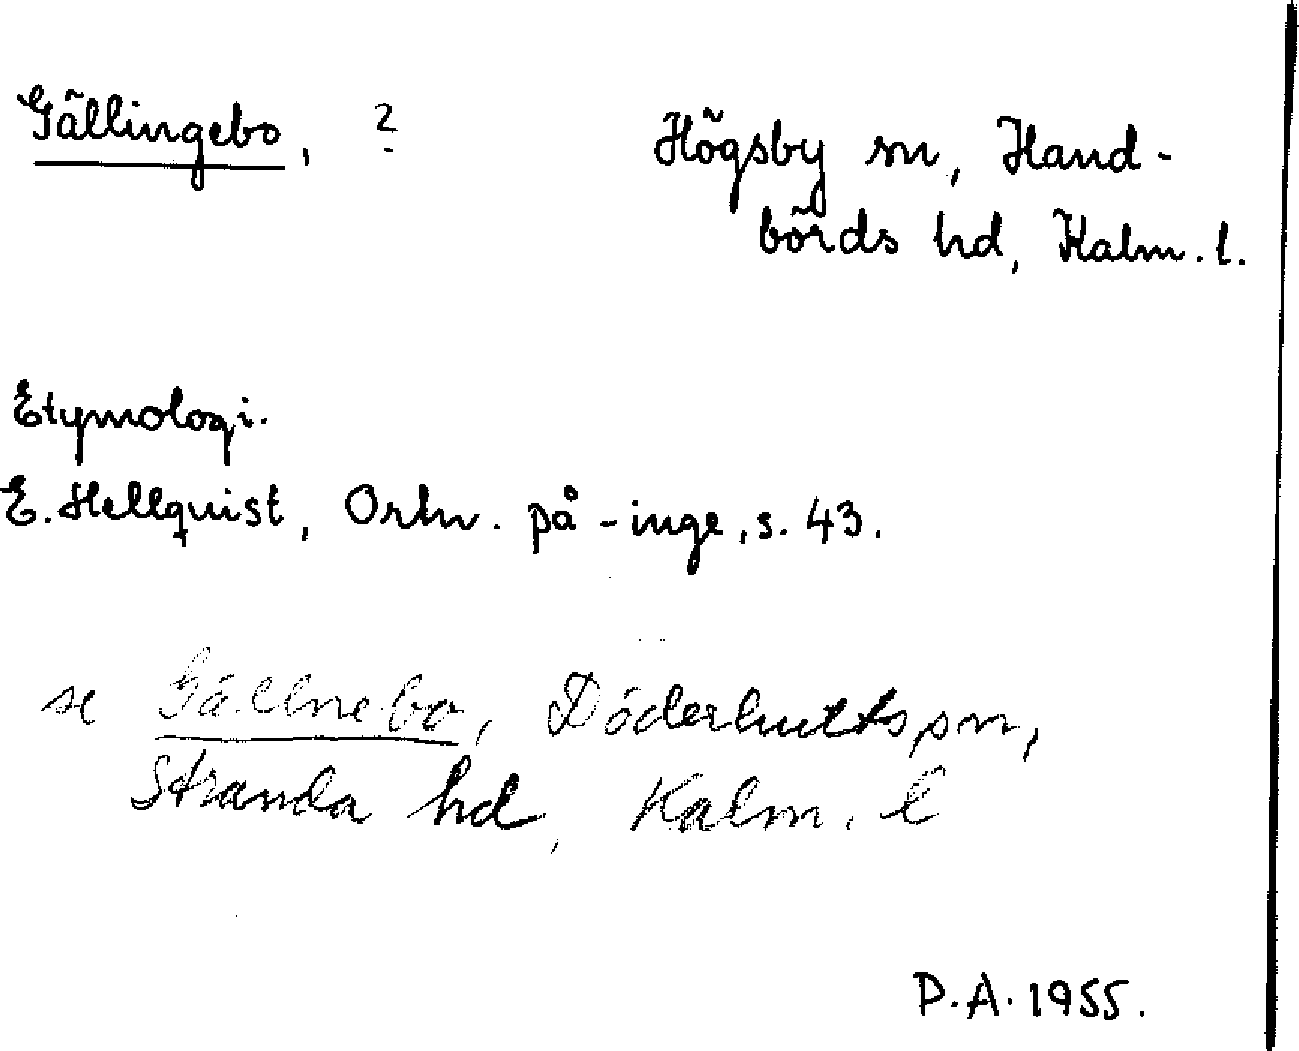 Gällingebo, ?
Högsby sn, Hand-
börds hd, Kalm. l.
Etymologi.
E. Hellquist, Ortn. på -inge, s. 43.
se Gällnebo, Döderhults sn,
Stranda hd, Kalm. l
P.A. 1955.